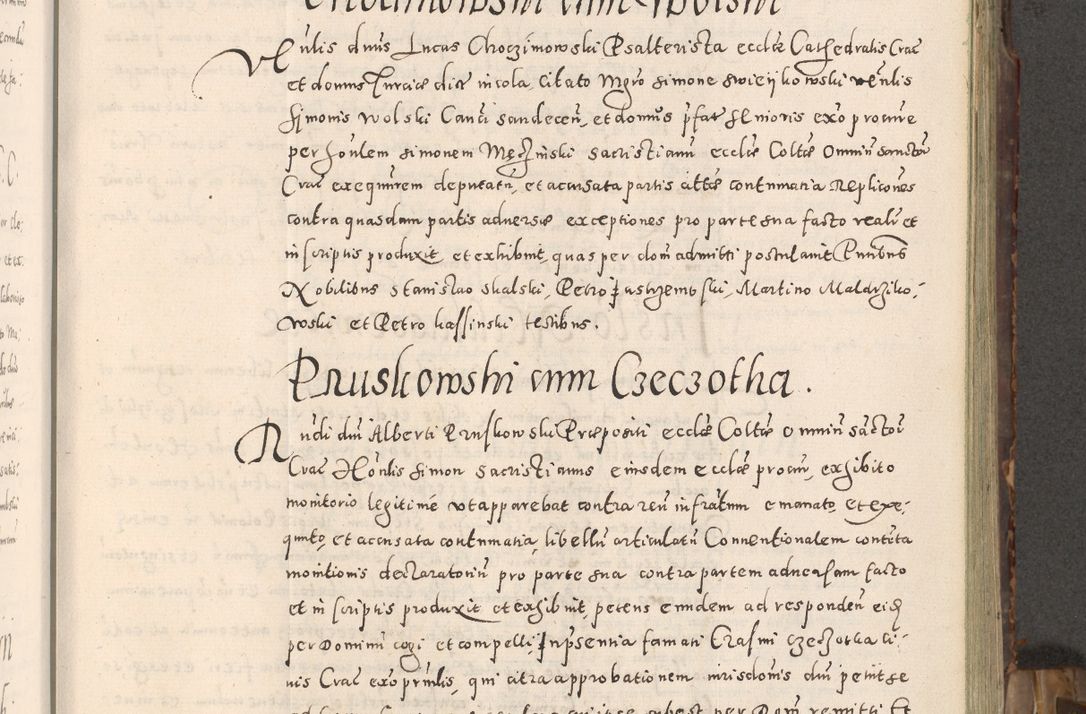 Choczimowski cum Wolski
Vēnlis dnus Lucas Choczimowski Psalterista eccłæ Cathedralis Crac
et domus Turciæ dictæ incola, Citato Mgro Simone Swieijkowski vēnlis
Simonis Wolski Canci Sandecen, et domus pfat senioris exo procure
per honlem Simonem Męczinski Sacristianu eccłæ Colłæ Omniu Sanctor
Crac exequurem deputatu, et accusata partis citæ contumatia Replicones
contra quasdam partis aduersæ exceptiones pro parte sua facto reali et
in scriptis produxit et exhibuit, quas per dom admitti postulauit Pntibus
Nobilibus Stanislao Skalski, Petro Justhemb ski, Martino Maldrziko-
wski et Petro Kassinski testibus.
Pruskowski cum Czeczotha.
Rndi dni Alberti Pruskowski Præpositi eccłæ Colłæ Omniu Sāctor
Crac Honlis Simon Sacristianus eiusdem eccłæ procur, exhibito
monitorio legitime ut apparebat contra reu infratum emanato, et exe-
quuto, et accusata contumatia, libellu articulatu Conuentionalem conteta
monitionis declaratoriu pro parte sua contra partem aduersam facto
et in scriptis produxit et exhibuit, petens eundem ad responden eisd
per Dominu cogi et compelli In psentia famati Erasmi Czeczotka ci-
uis Crac exo prinlis, qui citra approbationem iurisdonis dni petit se